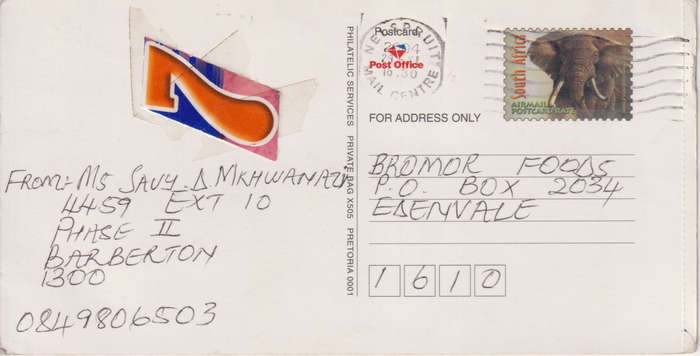 7
FROM:- MS SAVY D MKHWANAZI
4459 EXT 10
PHASE II
BARBERTON
1300
0849806503
PHILATELIC SERVICES PRIVATE BAG X505 PRETORIA 0001
Postcard
Post Office
NELSPRUIT
MAIL CENTRE
South Africa
AIRMAIL
POSTCARD RATE
FOR ADDRESS ONLY
BROMOR FOODS
P.O. BOX 2034
EDENVALE
1610